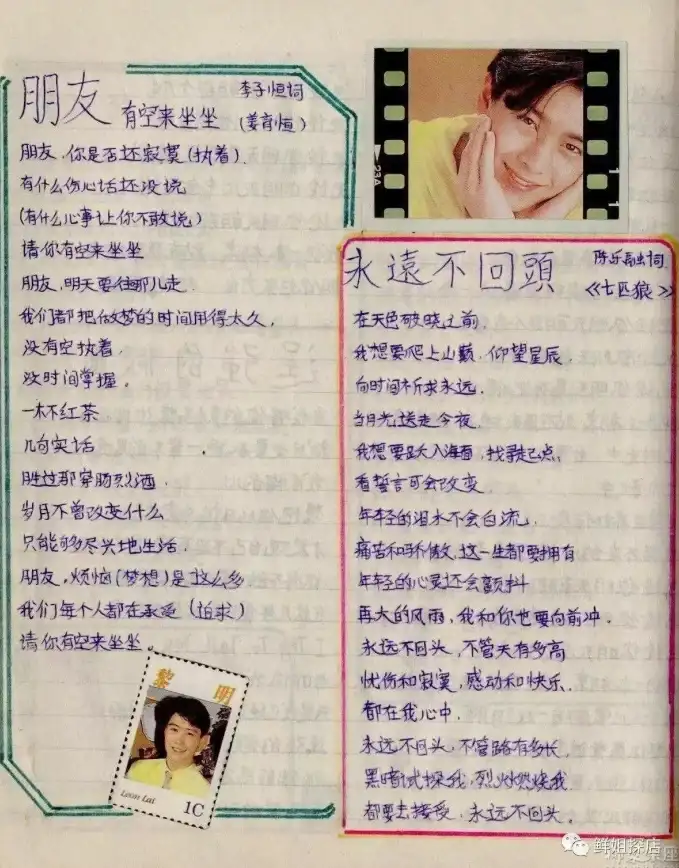 朋友 有空来坐坐
李子恒词
(姜育恒)
朋友,你是否还寂寞(执着)
有什么伤心话还没说
(有什么心事让你不敢说)
请你有空来坐坐
朋友,明天要往那儿走
我们都把做梦的时间用得太久,
没有空执着,
没时间掌握。
一杯红茶
几句实话
胜过那穿肠烈酒
岁月不曾改变什么
只能够尽兴地生活
朋友,烦恼(梦想)是这么多
我们每个人都在承受(追求)
请你有空来坐坐
黎明
Leon Lai
1C
23A
永遠不回頭
陈乐融词
《七匹狼》
在天色破晓之前
我想要爬上山巅,仰望星辰
向时间祈求永远,
当月光送走今夜
我想要跃入海面,找寻起点,
看誓言可会改变
年轻的泪水不会白流,
痛苦和骄傲,这一生都要拥有
年轻的心灵还会颤抖
再大的风雨,我和你也要向前冲,
永远不回头,不管天有多高
忧伤和寂寞,感动和快乐,
都在我心中,
永远不回头,不管路有多长,
黑暗试探我,烈火燃烧我
都要去接受,永远不回头,
鲜姐探店